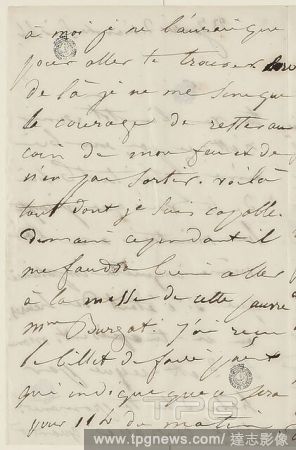 à moi je ne l'aurai que
pour aller te trouver
de là je ne me sens que
le courage de rester au
coin de mon feu et de
n'en pas sortir. voilà
tout dont je suis capable.
Demain cependant il
me faudra bien aller
à la messe de cette pauvre
Mme Burgat. j'ai reçu
le billet de faire part
qui indique que ce sera
pour 11 h du matin
TPG
www.tpgnews.com / 達志影像